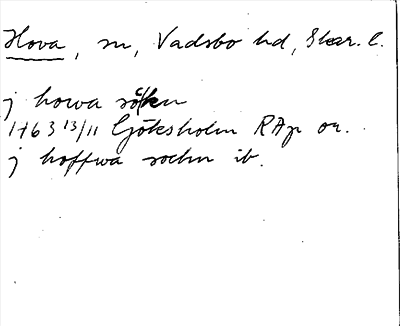 Hova, sn, Vadsbo hd, Skar. l.
j howa sokn
1463 13/11 Göksholm RAp or.
j hoffwa sochn ib.